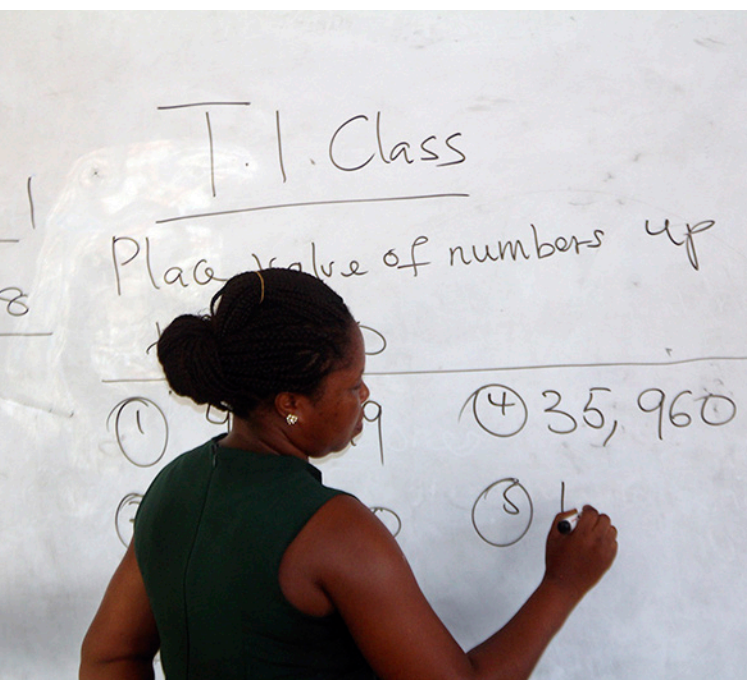 T.1. Class
1
Place value of numbers up
8
① 9
④ 35,960
⑤ 1